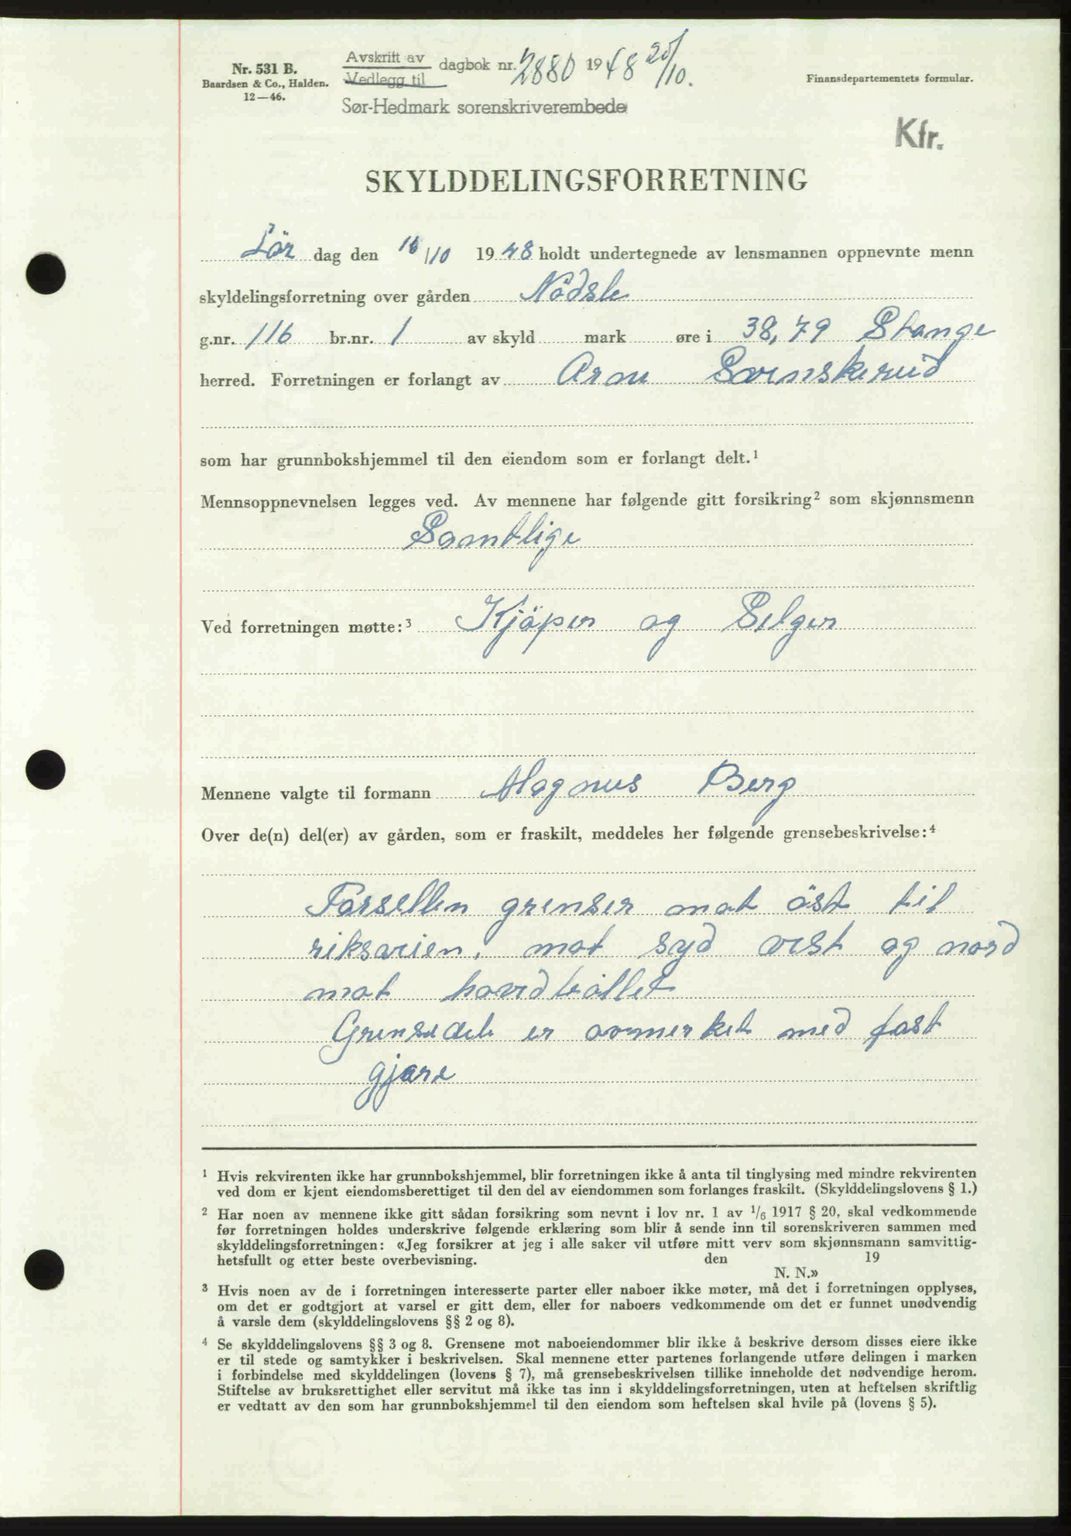 Nr. 531 B.
Baardsen & Co., Halden.
12—46.
Avskrift av
Vedlegg til
dagbok nr. 2880 1948 20/10.
Sør-Hedmark sorenskriverembede
Finansdepartementets formular.
Kfr.
SKYLDDELINGSFORRETNING
Lör dag den 16/10 1948 holdt undertegnede av lensmannen oppnevnte menn
skyldelingsforretning over gården Nådsle
g.nr. 116 br.nr. 1 av skyld mark øre i 38,79 Stange
herred. Forretningen er forlangt av Arne Svenskerud
som har grunnbokshjemmel til den eiendom som er forlangt delt.¹
Mennsoppnevnelsen legges ved. Av mennene har følgende gitt forsikring² som skjønnsmenn
Samtlige
Ved forretningen møtte:³ Kjöper og Selger
Mennene valgte til formann Magnus Berg
Over de(n) del(er) av gården, som er fraskilt, meddeles her følgende grensebeskrivelse:⁴
Parsellen grenser mot öst til
riksveien, mot syd vest og nord
mot hovedbøllet
er avmerket med fast
gjære
¹ Hvis rekvirenten ikke har grunnbokshjemmel, blir forretningen ikke å anta til tinglysing med mindre rekvirenten
ved dom er kjent eiendomsberettiget til den del av eiendommen som forlanges fraskilt. (Skylddelingslovens § 1.)
² Har noen av mennene ikke gitt sådan forsikring som nevnt i lov nr. 1 av 1/6 1917 § 20, skal vedkommende
før forretningen holdes underskrive følgende erklæring som blir å sende inn til sorenskriveren sammen med
skylddelingsforretningen: «Jeg forsikrer at jeg i alle saker vil utføre mitt verv som skjønnsmann samvittig-
hetsfullt og etter beste overbevisning. den 19
N. N.»
³ Hvis noen av de i forretningen interesserte parter eller naboer ikke møter, må det i forretningen opplyses,
om det er godtgjort at varsel er gitt dem, eller for naboers vedkommende om det er funnet unødvendig
å varsle dem (skylddelingslovens §§ 2 og 8).
⁴ Se skylddelingslovens §§ 3 og 8. Grensene mot naboeiendommer blir ikke å beskrive dersom disses eiere ikke
er til stede og samtykker i beskrivelsen. Skal mennene etter partenes forlangende utføre delingen i marken
i forbindelse med skylddelingen (lovens § 7), må grensebeskrivelsen tillike inneholde det nødvendige herom.
Stiftelse av bruksrettighet eller servitut må ikke tas inn i skylddelingsforretningen, uten at heftelsen skriftlig
er vedtatt av den som har grunnbokshjemmel til den eiendom som heftelsen skal hvile på (lovens § 5).